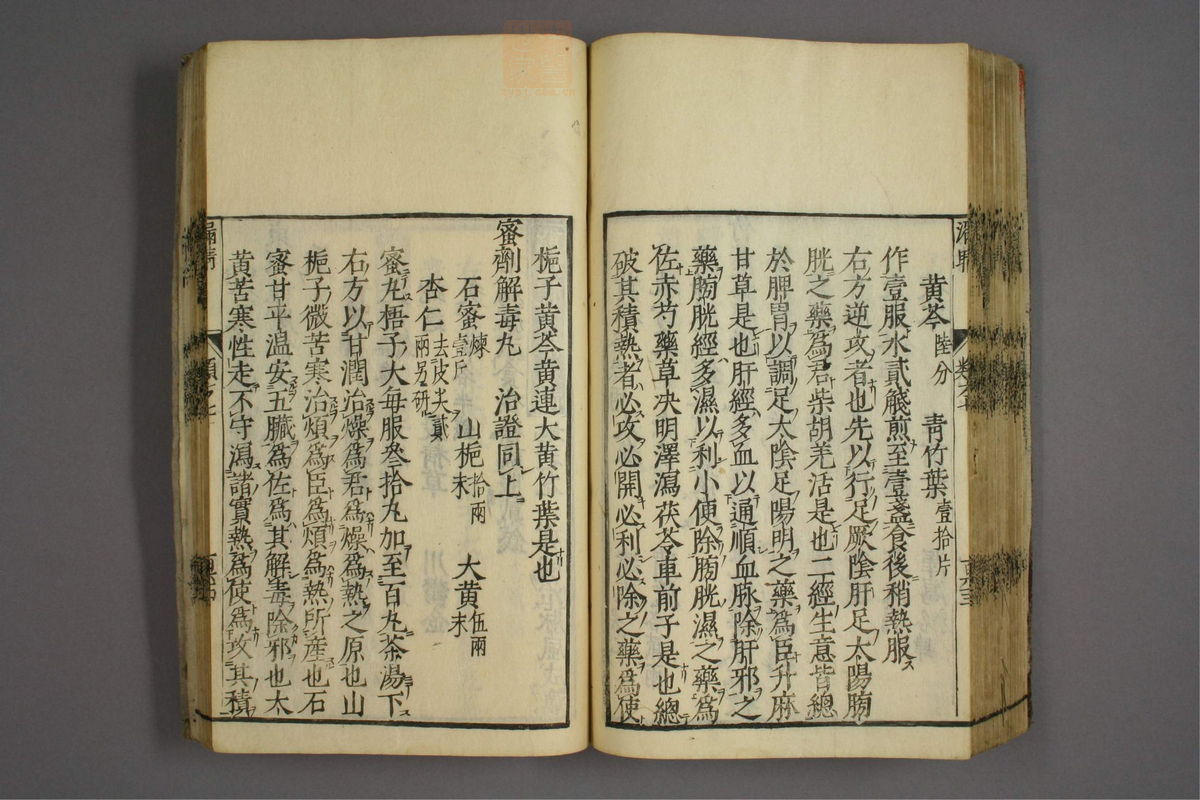 黄芩陸分 青竹葉壹拾片
作壹服水貳盞煎至壹盞食後稍熱服
右方逆攻者也先以行足厥陰肝足太陽膀
胱之藥為君柴胡羌活是也二經生意皆總
於脾胃以調足太陰足陽明之藥為臣升麻
甘草是也肝經多血以通順血脉除肝邪之
藥膀胱經多濕以利小便除膀胱濕之藥為
佐赤芍藥草决明澤瀉茯苓車前子是也總
破其積熱者必攻必開必利必除之藥為使
梔子黄芩黄連大黄竹葉是也
蜜劑解毒丸 治證同上
石蜜煉壹斤 山梔拾兩末 大黄伍兩末
杏仁去皮尖貳兩另研
蜜丸梧子大每服叄拾丸加至百丸茶湯下
右方以甘潤治燥為君為燥為熱之原也山
梔子微苦寒治煩為臣為煩為熱所産也石
蜜甘平温安五臓為佐為其解毒除邪也大
黄苦寒性走不守瀉諸實熱為使為攻其積